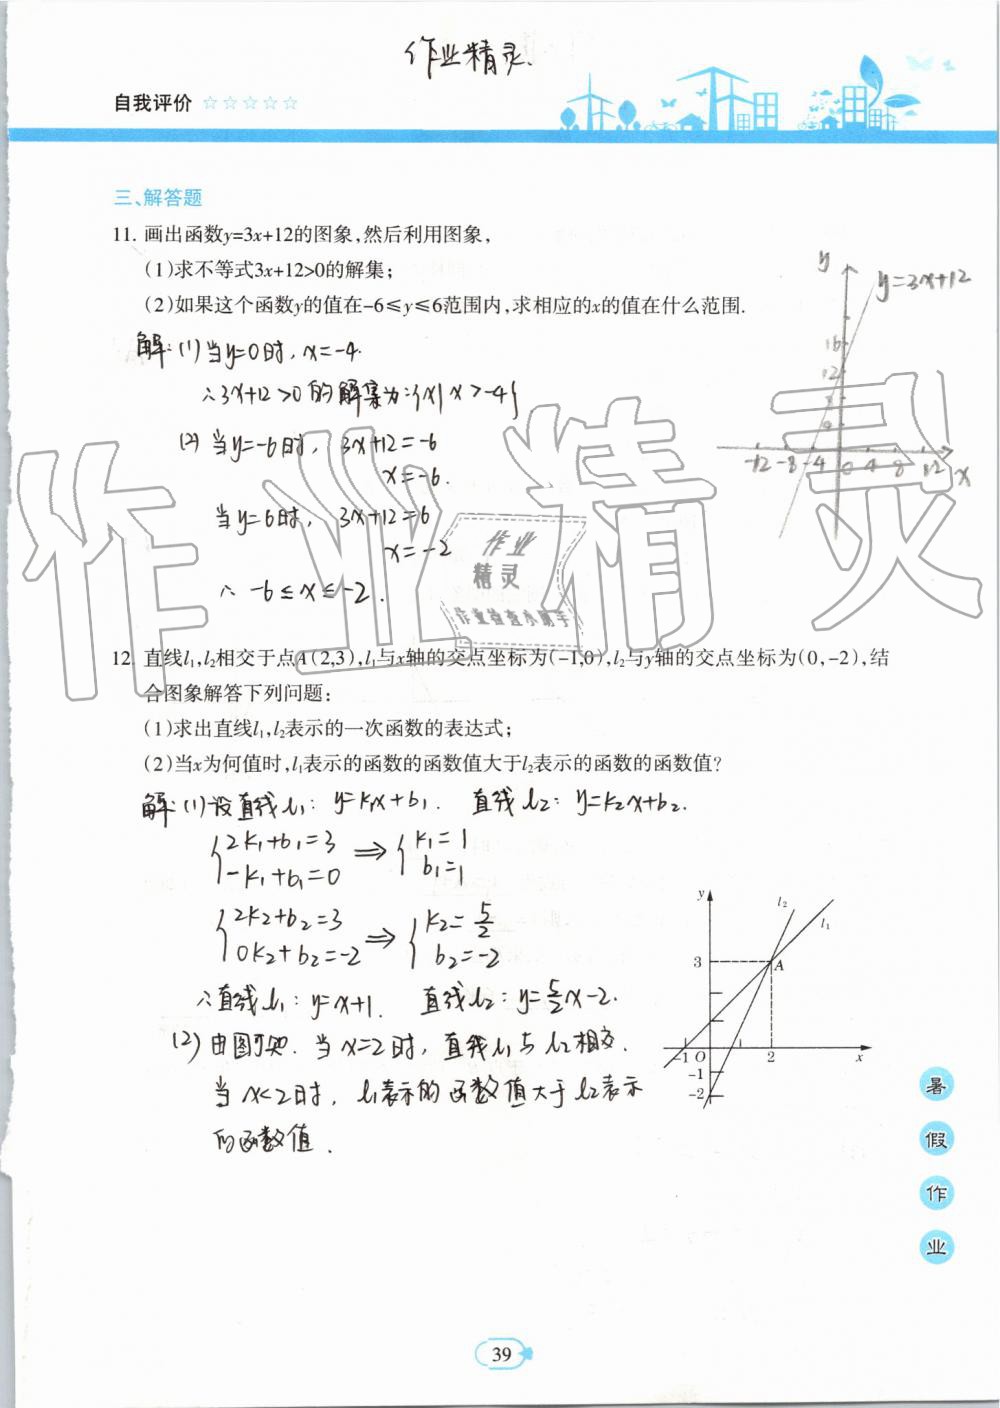 作业精灵.
自我评价 ☆☆☆☆☆
三、解答题
11. 画出函数y=3x+12的图象,然后利用图象,
(1)求不等式3x+12>0的解集;
(2)如果这个函数y的值在-6≤y≤6范围内,求相应的x的值在什么范围.
解:(1)当y=0时, x=-4.
∴3x+12>0的解集为:{x|x>-4}
(2)当y=-6时, 3x+12=-6
x=-6.
当y=6时, 3x+12=6
x=-2
∴ -6≤x≤-2.
y
y=3x+12
16
12
8
4
-12 -8 -4 0 4 8 12 x
作业精灵
作业
精灵
作业检查小助手
12. 直线l₁,l₂相交于点A(2,3),l₁与x轴的交点坐标为(-1,0),l₂与y轴的交点坐标为(0,-2),结
合图象解答下列问题:
(1)求出直线l₁,l₂表示的一次函数的表达式;
(2)当x为何值时,l₁表示的函数的函数值大于l₂表示的函数的函数值?
解:(1)设直线l₁: y=k₁x+b₁. 直线l₂: y=k₂x+b₂.
{2k₁+b₁=3 ⇒ {k₁=1
-k₁+b₁=0 b₁=1
{2k₂+b₂=3 ⇒ {k₂=5/2
0k₂+b₂=-2 b₂=-2
∴直线l₁: y=x+1. 直线l₂: y=5/2x-2.
(2)由图可知.当x=2时,直线l₁与l₂相交.
当x<2时, l₁表示的函数值大于l₂表示
的函数值.
y l₂
l₁
3 A
-1 O 2 x
-1
-2
暑
假
作
业
39